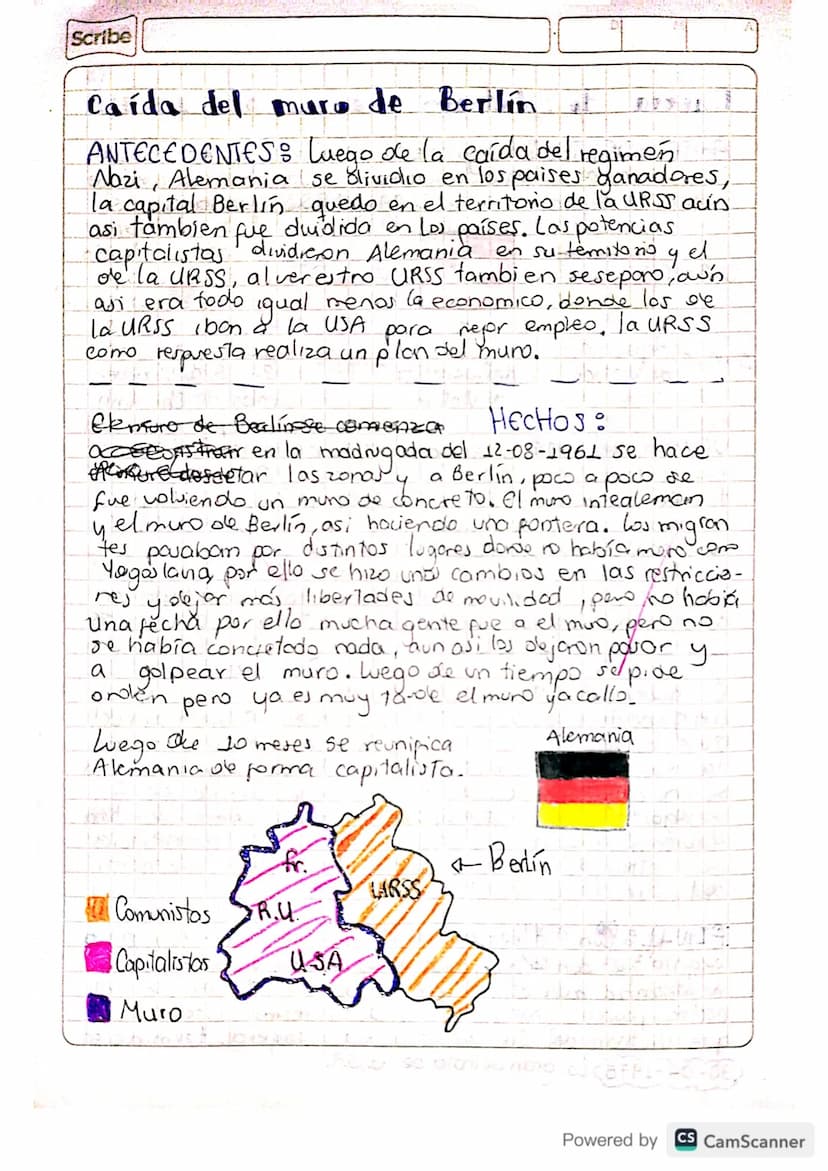 Scribe
Caída del muro de Berlín
ANTECEDENTES: Luego de la caída del regimen
Nazi, Alemania se dividio en los paises ganadores,
la capital Berlín quedo en el territorio de la URSS aún
asi tambien fue dividida en los países. Las potencias
capitalistas dividieron Alemania en su territorio y el
de la URSS, al ver esto URSS tambien se separo, aún
asi era todo igual menos lo economico, donde los de
la URSS iban a la USA para mejor empleo. la URSS
como respuesta realiza un plan del muro.
El muro de Berlín se comienza HECHOS:
a construir en la madrugada del 12-08-1961 se hace
las zonas y a Berlín, poco a poco se
fue volviendo un muro de concreto. El muro interaleman
y el muro de Berlín, asi haciendo una frontera. Los migran
tes pasaban por distintos lugares donde no había muro como
Yogoslana, por ello se hizo unos cambios en las restriccio-
nes y dejar más libertades de movilidad, pero no había
una fecha por ello mucha gente fue a el muro, pero no
se había concretado nada, aun asi los dejaron pasar y
a golpear el muro. Luego de un tiempo se pide
orden pero ya es muy tarde el muro ya callo.
Luego de 10 meses se reunifica
Alemania de forma capitalista.
Alemania
← Berlín
fr.
URSS
R.U.
USA
Comunistas
Capitalistas
Muro
Powered by CS CamScanner